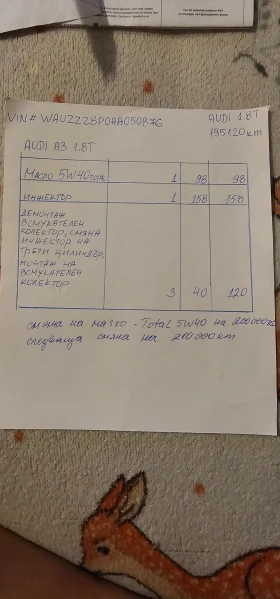 VIN# WAUZZZ8P0AA050876
AUDI 1.8T
195120 km
AUDI A3 1.8T
МАСЛО 5W40 TOTAL 1 98 98
ИНЖЕКТОР 1 158 158
ДЕМОНТАЖ
ВСМУКАТЕЛЕН
КОЛЕКТОР, СМЯНА
ИНЖЕКТОР НА
ТРЕТИ ЦИЛИНДЪР,
МОНТАЖ НА
ВСМУКАТЕЛЕН
КОЛЕКТОР
3 40 120
СМЯНА НА МАСЛО - Total 5W40 на 200000км
следваща смяна на 210000км